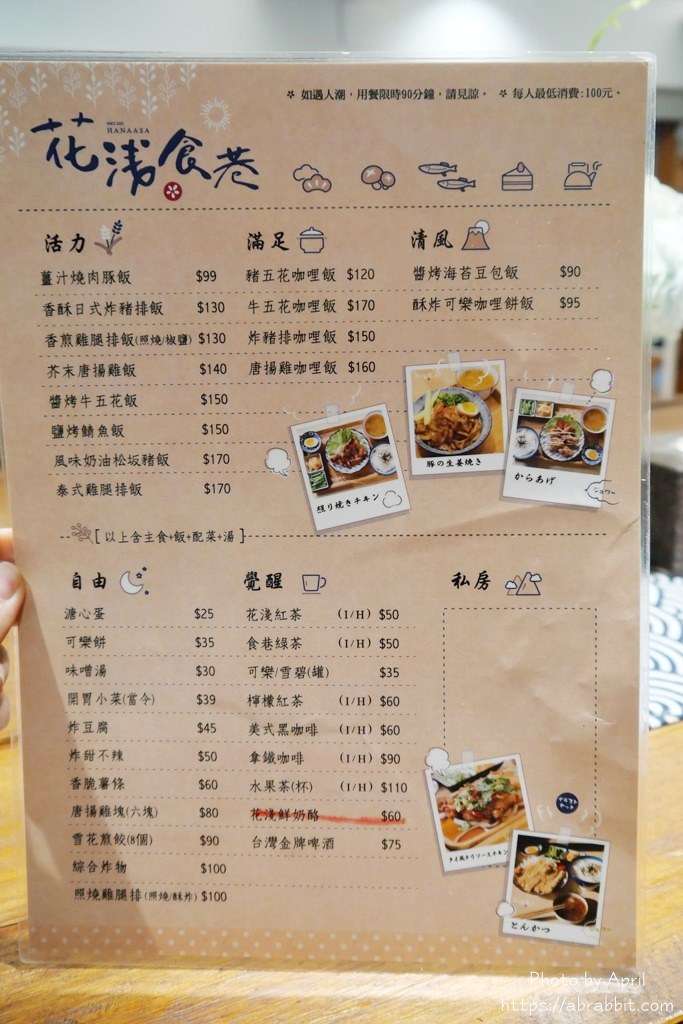 ＊ 如遇人潮，用餐限時90分鐘，請見諒。 ＊ 每人最低消費:100元。
HANAASA
花淺食巷
活力
薑汁燒肉豚飯 $99
香酥日式炸豬排飯 $130
香煎雞腿排飯(照燒/椒鹽) $130
芥末唐揚雞飯 $140
醬烤牛五花飯 $150
鹽烤鯖魚飯 $150
風味奶油松坂豬飯 $170
泰式雞腿排飯 $170
滿足
豬五花咖哩飯 $120
牛五花咖哩飯 $170
炸豬排咖哩飯 $150
唐揚雞咖哩飯 $160
清風
醬烤海苔豆包飯 $90
酥炸可樂咖哩餅飯 $95
照り焼きチキン
豚の生姜焼き
からあげ
[以上含主食+飯+配菜+湯]
自由
溏心蛋 $25
可樂餅 $35
味噌湯 $30
開胃小菜(當令) $39
炸豆腐 $45
炸甜不辣 $50
香脆薯條 $60
唐揚雞塊(六塊) $80
雪花煎餃(8個) $90
綜合炸物 $100
照燒雞腿排(照燒/酥炸) $100
覺醒
花淺紅茶 (I/H) $50
食巷綠茶 (I/H) $50
可樂/雪碧(罐) $35
檸檬紅茶 (I/H) $60
美式黑咖啡 (I/H) $60
拿鐵咖啡 (I/H) $90
水果茶(杯) (I/H) $110
花淺鮮奶酪 $60
台灣金牌啤酒 $75
私房
タイ風チリソースチキン
とんかつ
Photo by April
https://abrabbit.com